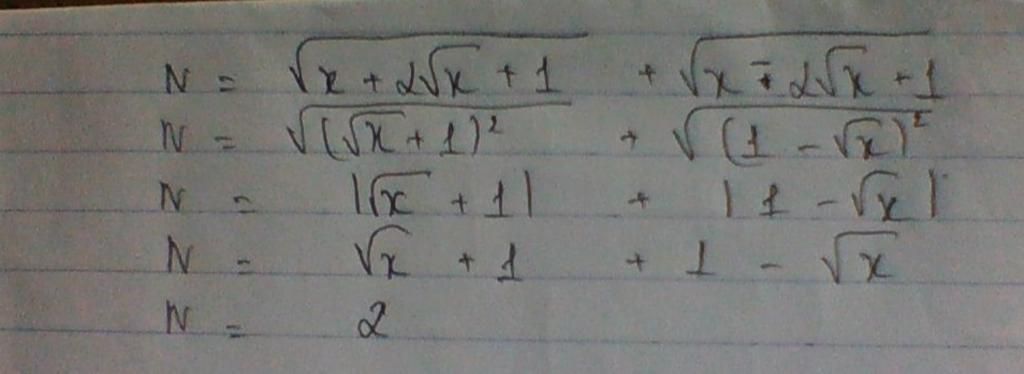 N = √(x + 2√x + 1) + √(x - 2√x + 1)
N = √((√x + 1)²) + √((1 - √x)²)
N = |√x + 1| + |1 - √x|
N = √x + 1 + 1 - √x
N = 2